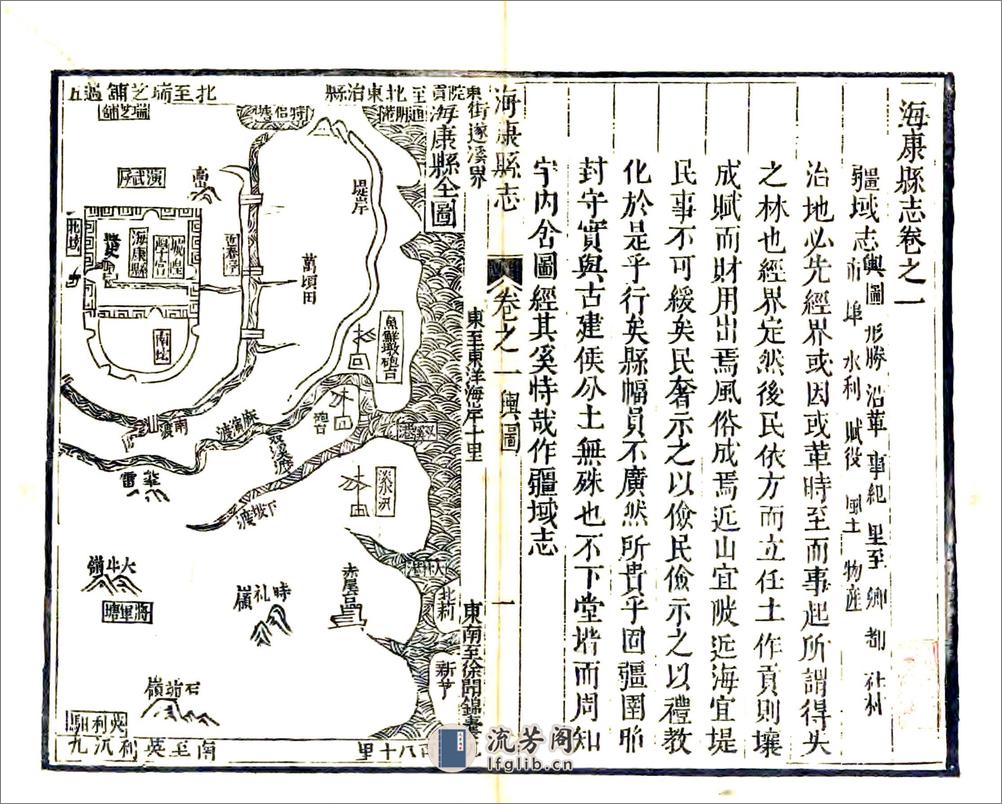 海康縣志卷之一
疆域志 輿圖 形勝 沿革 事紀 里至 鄉都 社村
市埠 水利 賦役 風土 物產
治地必先經界或因或革時至而事起所謂得失
之林也經界定然後民依方而立任土作貢則壤
成賦而財用出焉風俗成焉近山宜陂近海宜堤
民事不可緩矣民奢示之以儉民儉示之以禮教
化於是乎行矣縣幅員不廣然所貴乎固疆圉
封守實與古建侯分土無殊也不下堂堦而周知
宇内舍圖經其奚恃哉作疆域志
海康縣志
卷之一
輿圖
一
海康縣全圖
街遂溪界
東至東洋海岸十里
東南至徐聞錦囊
北至瑞芝舖
瑞芝舖
演武
堤岸
萬頃田
城隍
海康縣
南渡
雙溪
淡水洲
雷
下坡渡
大牛嶺
將軍塘
時礼嶺
赤尾台
北莉
新
石茆嶺
英利
南至英利汛九
八十里
流芳阁
lfglib.cn